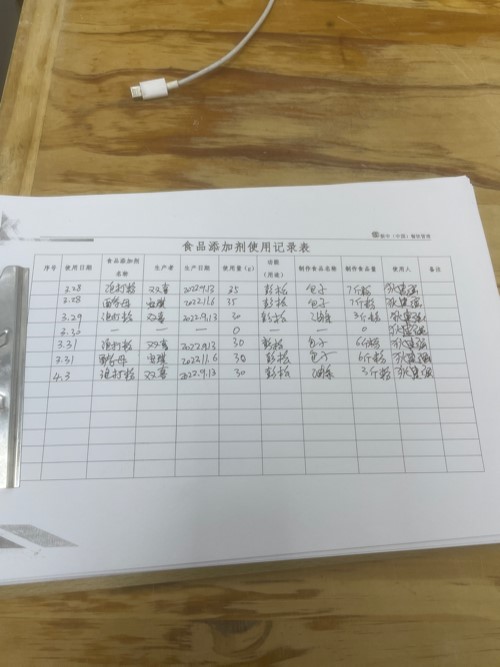 食品添加剂使用记录表
序号 使用日期 食品添加剂名称 生产者 生产日期 使用量(g) 功能(用途) 制作食品名称 制作食品量 使用人 备注
3.28 泡打粉 双喜 2022.9.13 35 彭松 包子 7斤粉
3.28 酵母 2022.11.6 35 彭松 包子 7斤粉
3.29 泡打粉 双喜 2022.9.13 30 彭松 油条 3斤粉
3.30 — — — 0 — — 0
3.31 泡打粉 双喜 2022.9.13 30 彭松 包子 6斤粉
3.31 酵母 2022.11.6 30 彭松 包子 6斤粉
4.3 泡打粉 双喜 2022.9.13 30 彭松 油条 3斤粉